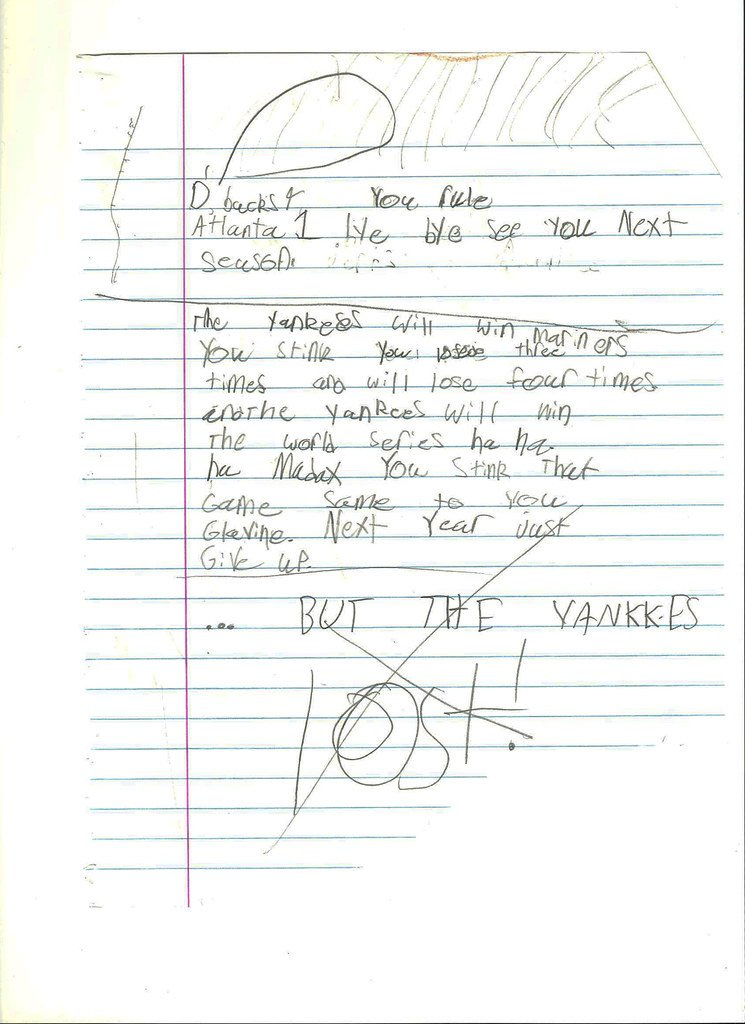 D,backs 4 You rule
Atlanta 1 bye bye see you Next
season.
The Yankees will win Mariners
You stink You three
times and will lose four times
and the Yankees will win
The world series ha ha
ha Madax You Stink That
Game same to you
Glavine. Next Year just
Give up.
... BUT THE YANKKES
lost!